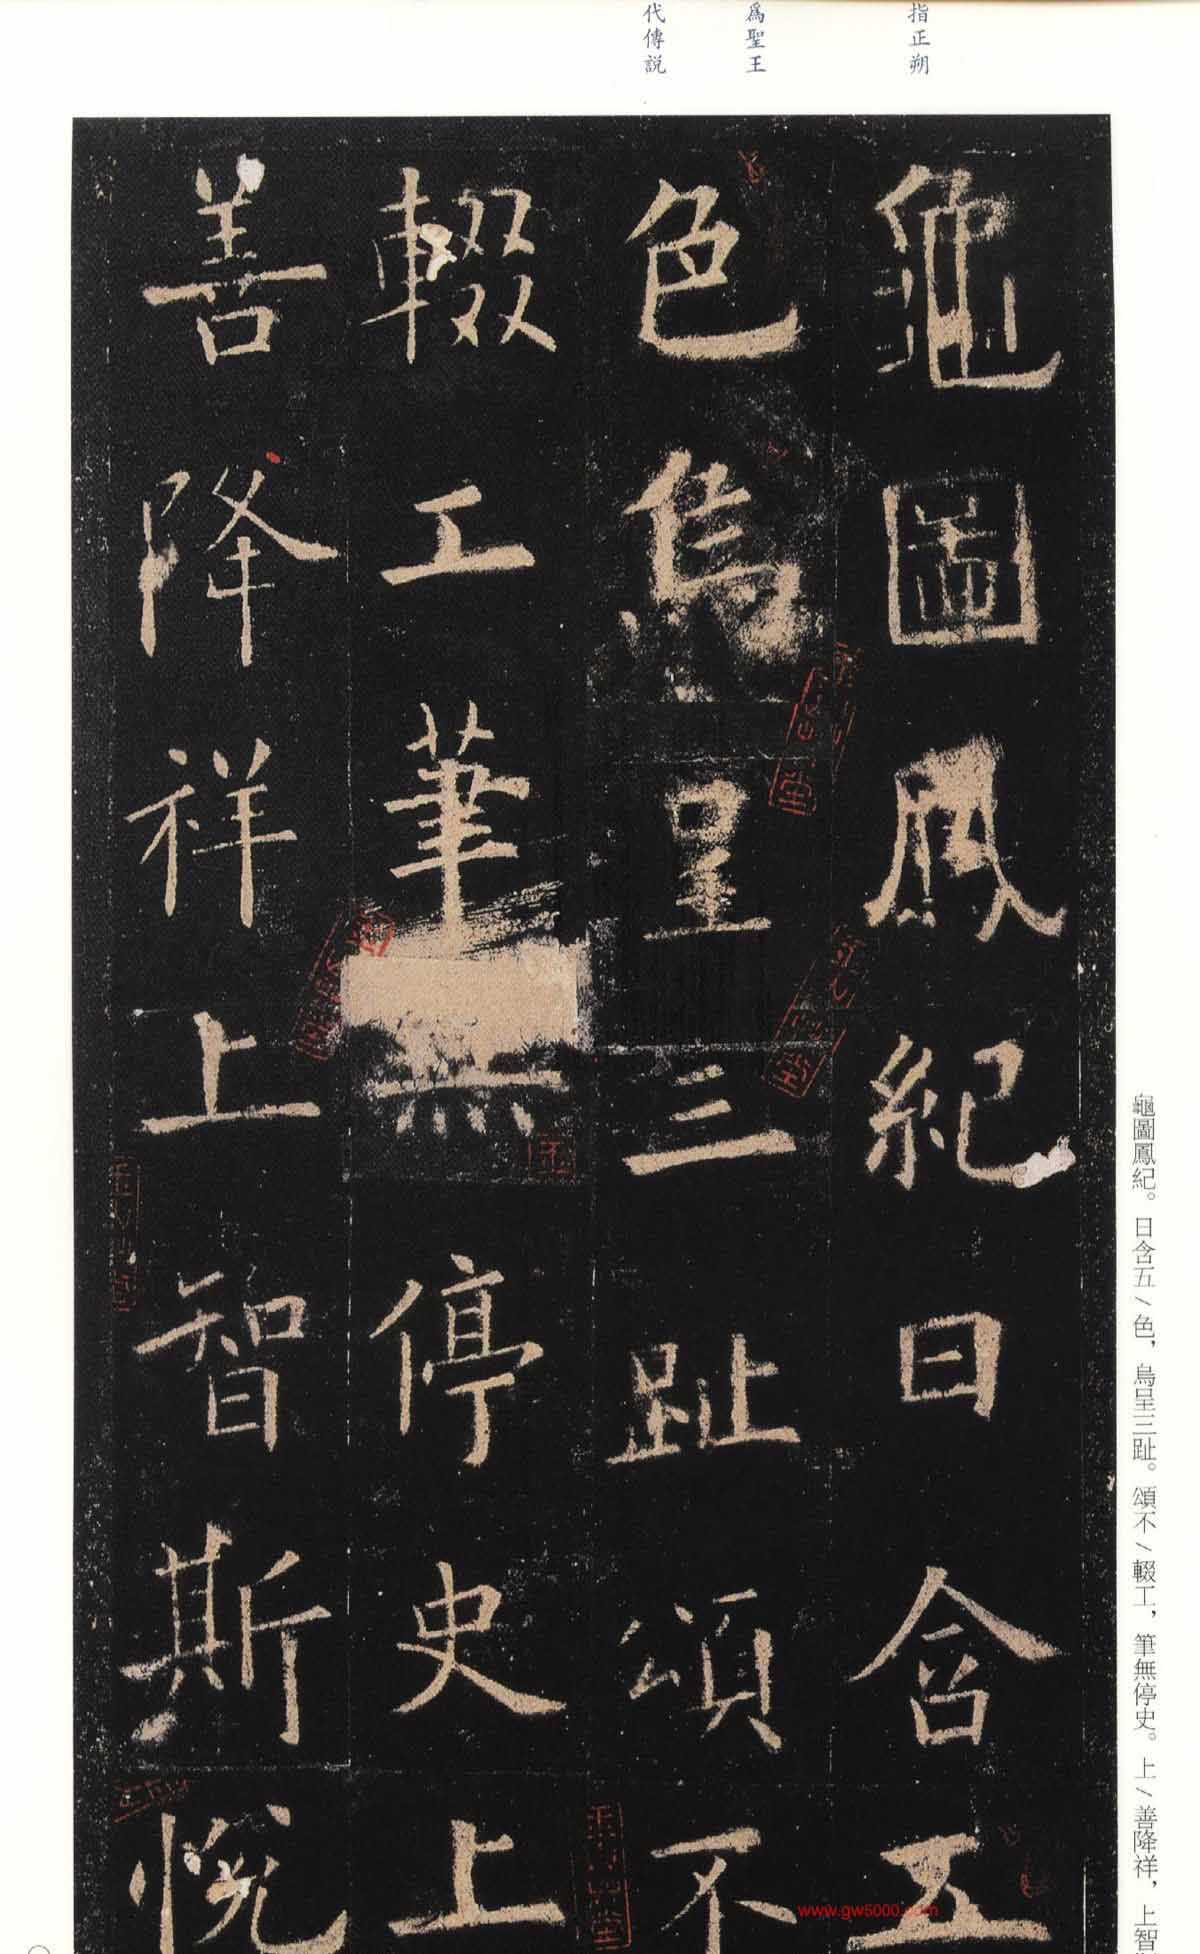 指正朔
爲聖王
代傳説
龜圖鳳紀日含五
色烏呈三趾頌不
輟工筆無停史上
善降祥上智斯悅
龜圖鳳紀。日含五/色，烏呈三趾。頌不/輟工，筆無停史。上/善降祥，上智
www.gw5000.com